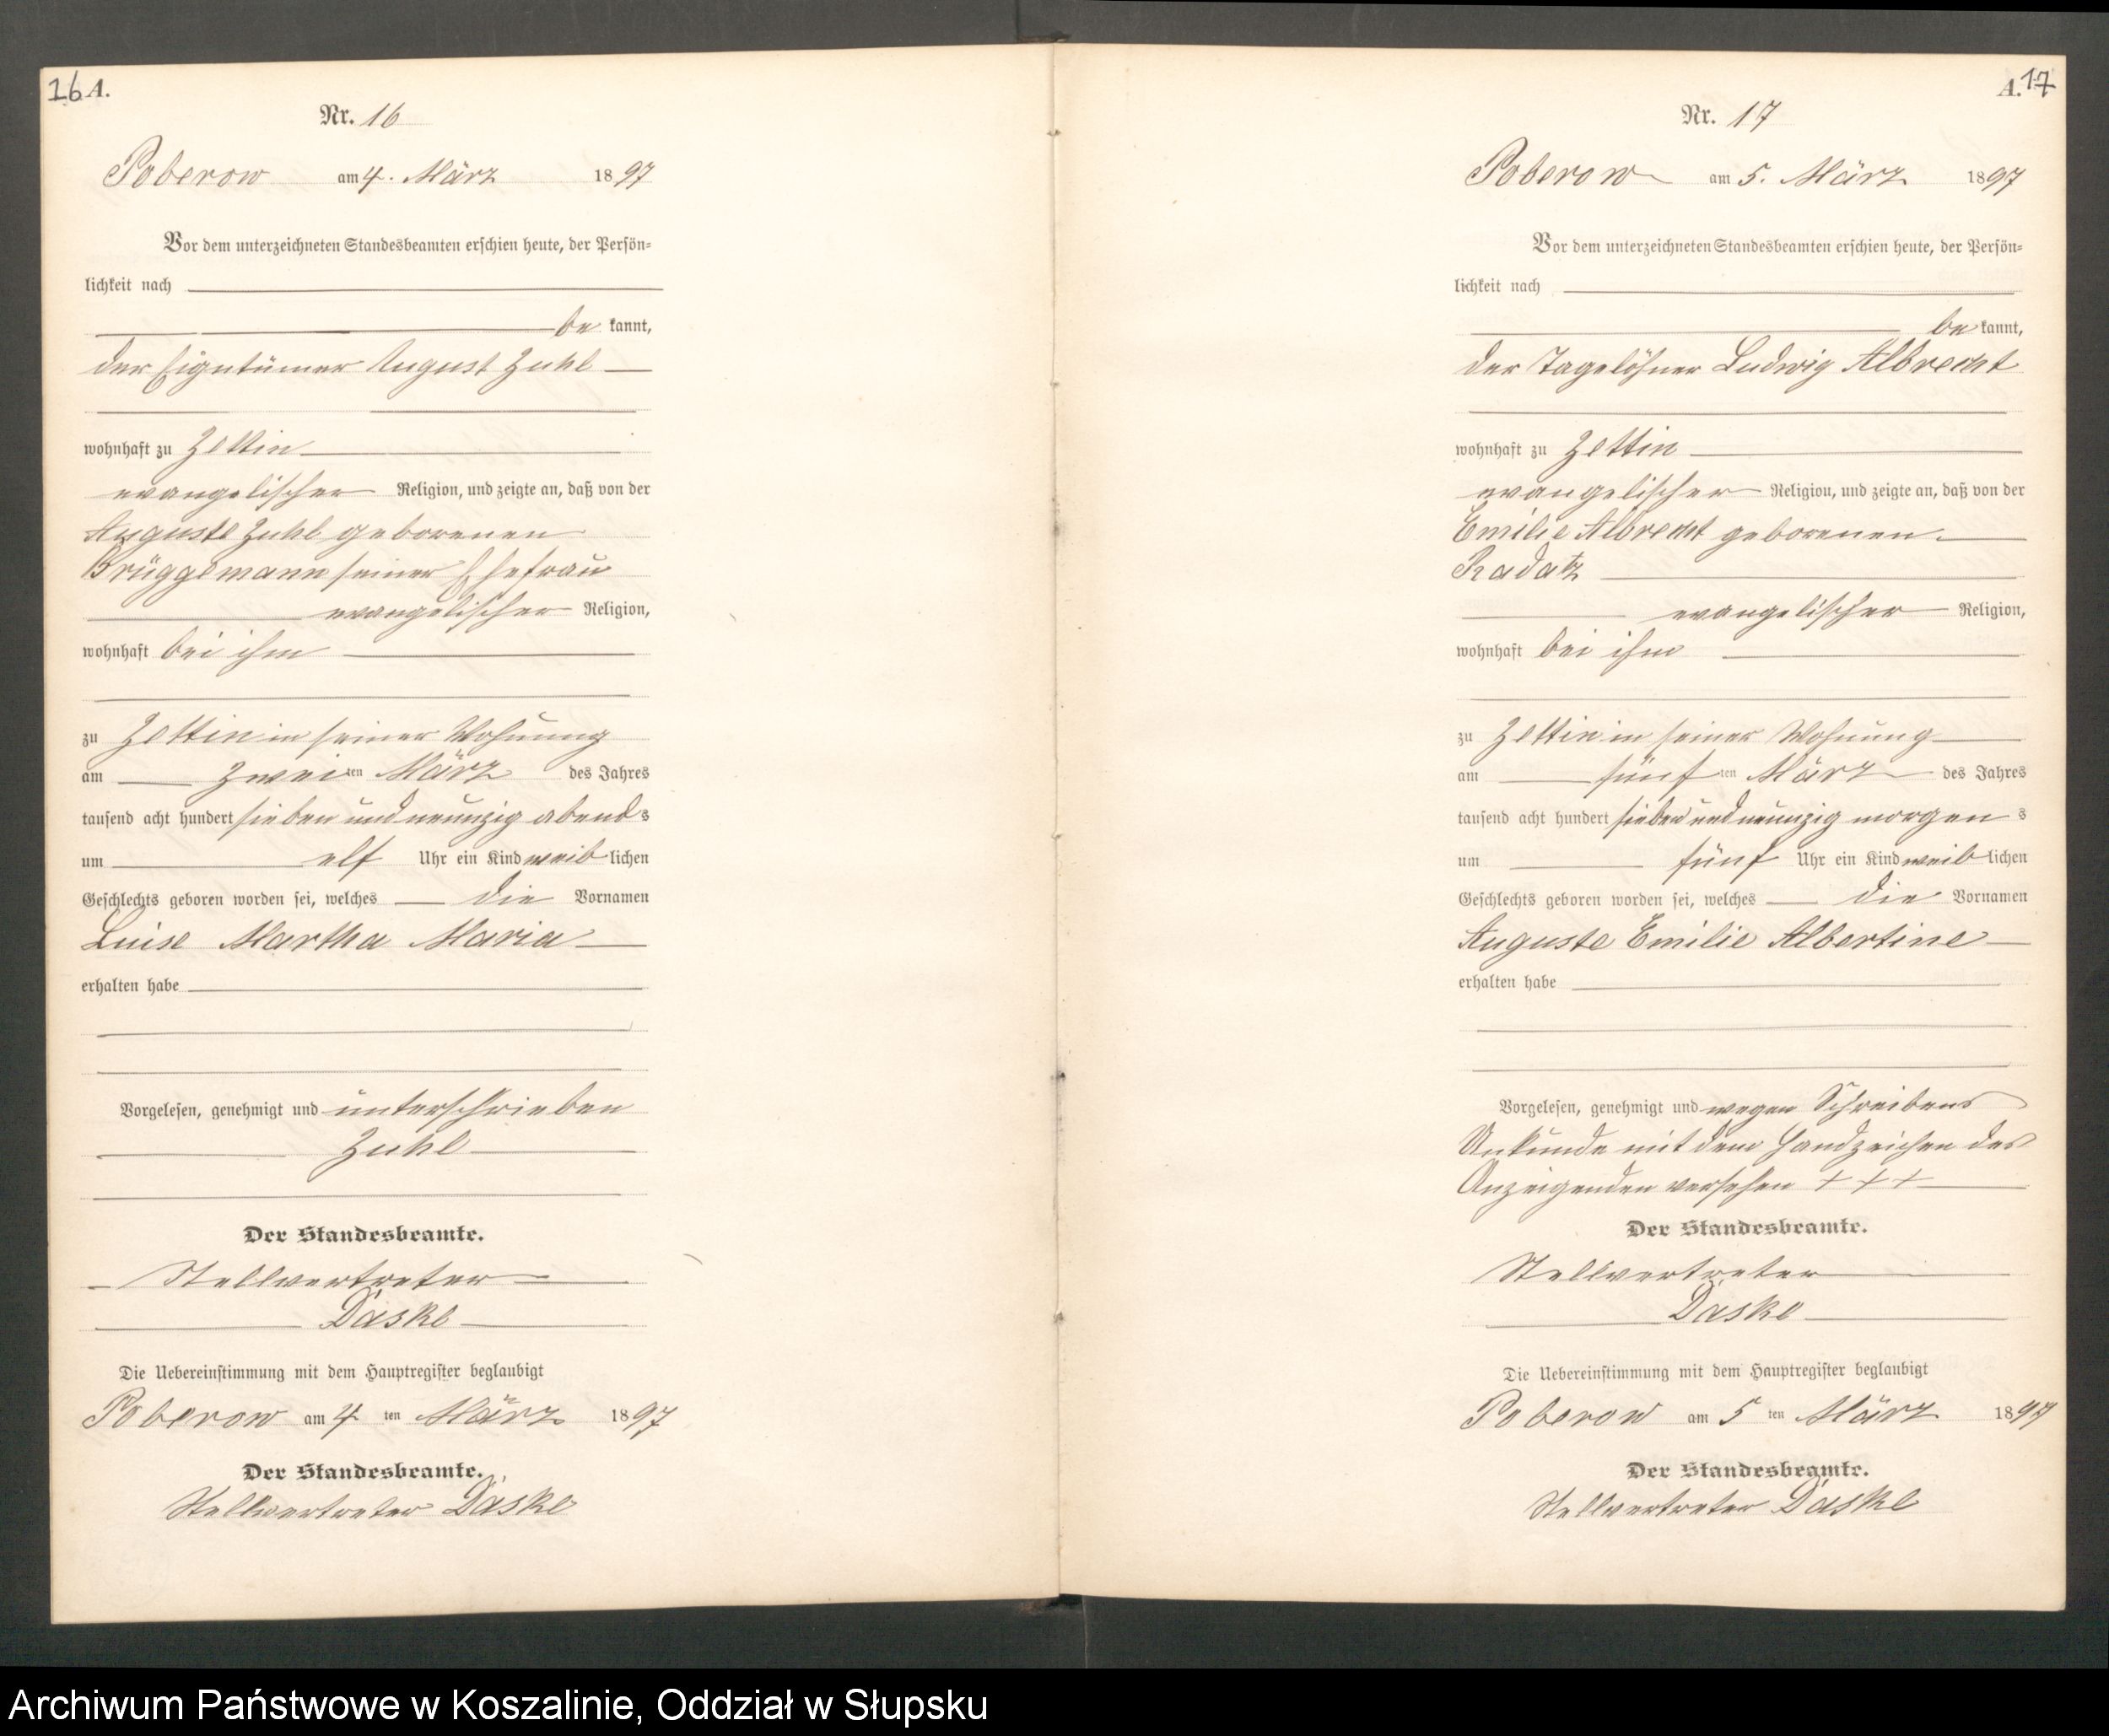 16 A.
Nr. 16
Poberow am 4. März 1897
Vor dem unterzeichneten Standesbeamten erschien heute, der Persön=
lichkeit nach
be kannt,
der Eigentümer August Zuhl
wohnhaft zu Zettin
evangelischer Religion, und zeigte an, daß von der
Auguste Zuhl geborenen
Brüggemann seiner Ehefrau
evangelischer Religion,
wohnhaft bei ihm
zu Zettin in seiner Wohnung
am zweiten März des Jahres
tausend acht hundert sieben und neunzig abends
um elf Uhr ein Kind weiblichen
Geschlechts geboren worden sei, welches die Vornamen
Luise Martha Maria
erhalten habe
Vorgelesen, genehmigt und unterschrieben
Zuhl
Der Standesbeamte.
Stellvertreter
Daske
Die Uebereinstimmung mit dem Hauptregister beglaubigt
Poberow am 4 ten März 1897
Der Standesbeamte.
Stellvertreter Daske
A. 17
Nr. 17
Poberow am 5. März 1897
Vor dem unterzeichneten Standesbeamten erschien heute, der Persön=
lichkeit nach
be kannt,
der Tagelöhner Ludwig Albrecht
wohnhaft zu Zettin
evangelischer Religion, und zeigte an, daß von der
Emilie Albrecht geborenen
Radatz
evangelischer Religion,
wohnhaft bei ihm
zu Zettin in seiner Wohnung
am fünf ten März des Jahres
tausend acht hundert sieben und neunzig morgens
um fünf Uhr ein Kind weiblichen
Geschlechts geboren worden sei, welches die Vornamen
Auguste Emilie Albertine
erhalten habe
Vorgelesen, genehmigt und wegen Schreibens
Unkunde mit dem Handzeichen des
Anzeigenden versehen + + +
Der Standesbeamte.
Stellvertreter
Daske
Die Uebereinstimmung mit dem Hauptregister beglaubigt
Poberow am 5 ten März 1897
Der Standesbeamte.
Stellvertreter Daske
Archiwum Państwowe w Koszalinie, Oddział w Słupsku